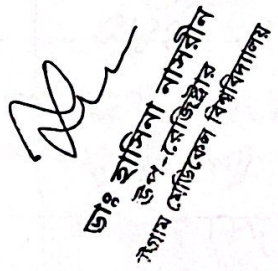 ডাঃ হাসিনা নাসরীন
উপ-রেজিস্ট্রার
মেডিকেল বিশ্ববিদ্যালয়